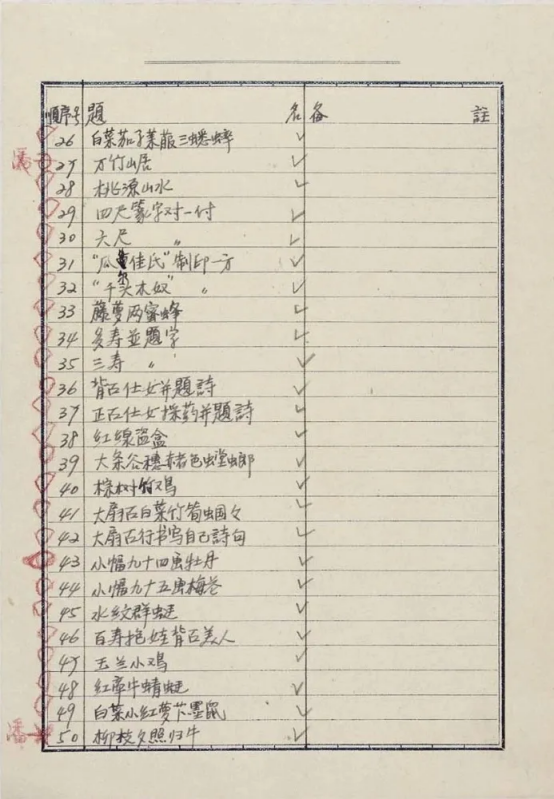 順序号 題 名 备 註
26 白菜茄子莱菔三蟋蟀 ✓
潘 27 万竹山居 ✓
28 桃源山水 ✓
29 四尺篆字对一付 ✓
30 六尺 〃 ✓
31 "瓜 佳氏"制印一方 ✓
32 "千 木奴" 〃 ✓
33 藤萝两蜜蜂 ✓
34 多寿並題字 ✓
35 三寿 〃 ✓
36 背面仕女并題詩 ✓
37 正面仕女採药并題詩 ✓
38 红線盗盒 ✓
39 大条谷穗赭色虫螳螂 ✓
40 棕树竹鸡 ✓
41 大扇面白菜竹筍蝈々 ✓
42 大扇面行书写自己詩句 ✓
43 小幅九十四画牡丹 ✓
44 小幅九十五画梅花 ✓
45 水纹群蜓 ✓
46 百寿抱娃背面美人 ✓
47 玉兰小鸡 ✓
48 红牵牛蜻蜓 ✓
49 白菜小红萝卜墨鼠 ✓
潘 50 柳枝夕照归牛 ✓